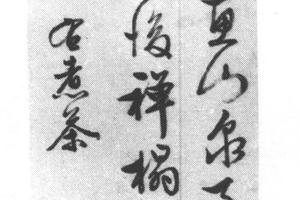 惠山泉
後禪榻
右煮茶